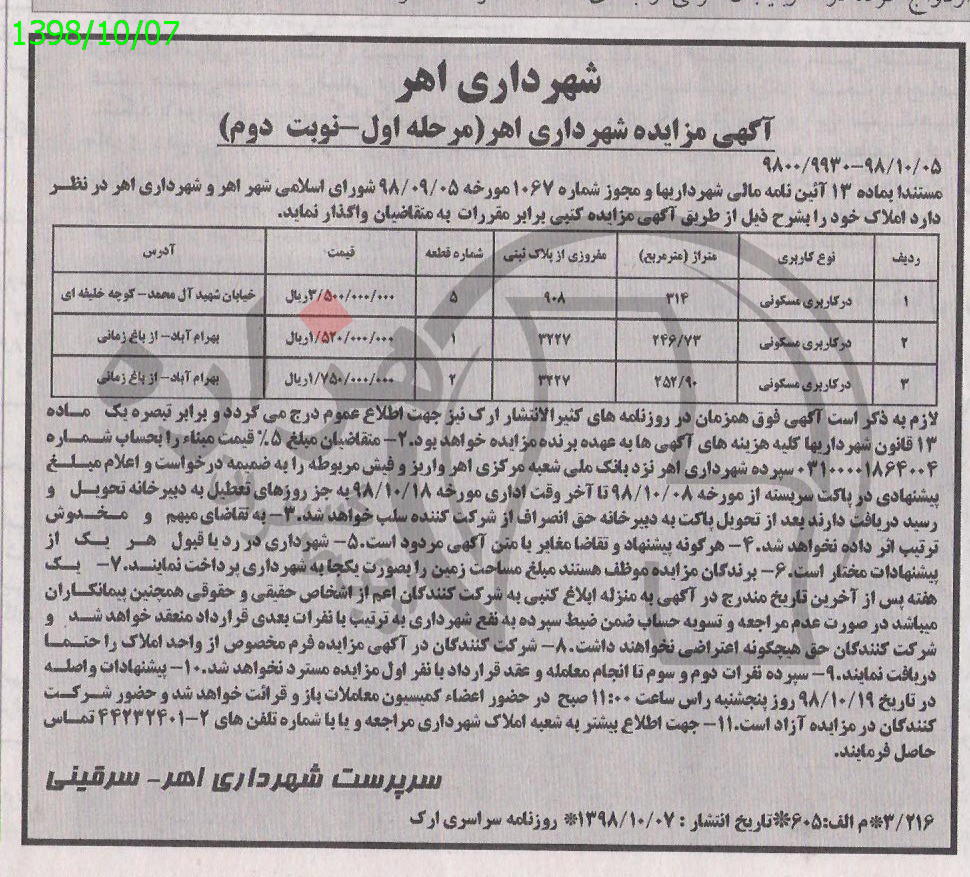 1398/10/07
شهرداری اهر
آگهی مزایده شهرداری اهر(مرحله اول-نوبت دوم)
۹۸/۱۰/۰۵-۹۸۰۰/۹۹۳۰
مستندا بماده ۱۳ آئین نامه مالی شهرداریها و مجوز شماره ۱۰۶۷ مورخه ۹۸/۰۹/۰۵ شورای اسلامی شهر اهر و شهرداری اهر در نظر
دارد املاک خود را بشرح ذیل از طریق آگهی مزایده کتبی برابر مقررات به متقاضیان واگذار نماید.
ردیف نوع کاربری متراژ (مترمربع) مفروزی از پلاک ثبتی شماره قطعه قیمت آدرس
۱ درکاربری مسکونی ۳۱۴ ۹۰۸ ۵ ۳/۵۰۰/۰۰۰/۰۰۰ریال خیابان شهید آل محمد- کوچه خلیفه ای
۲ درکاربری مسکونی ۲۴۶/۷۳ ۳۲۲۷ ۱ ۱/۵۲۰/۰۰۰/۰۰۰ریال بهرام آباد- از باغ زمانی
۳ درکاربری مسکونی ۲۵۲/۹۰ ۳۲۲۷ ۲ ۱/۷۵۰/۰۰۰/۰۰۰ریال بهرام آباد- از باغ زمانی
لازم به ذکر است آگهی فوق همزمان در روزنامه های کثیرالانتشار ارک نیز جهت اطلاع عموم درج می گردد و برابر تبصره یک ماده
۱۳ قانون شهرداریها کلیه هزینه های آگهی ها به عهده برنده مزایده خواهد بود.۲- متقاضیان مبلغ ۵٪ قیمت مبناء را بحساب شماره
۰۳۱۰۰۰۰۱۸۶۴۰۰۴ سپرده شهرداری اهر نزد بانک ملی شعبه مرکزی اهر واریز و فیش مربوطه را به ضمیمه درخواست و اعلام مبلغ
پیشنهادی در پاکت سربسته از مورخه ۹۸/۱۰/۰۸ تا آخر وقت اداری مورخه ۹۸/۱۰/۱۸ به جز روزهای تعطیل به دبیرخانه تحویل و
رسید دریافت دارند بعد از تحویل پاکت به دبیرخانه حق انصراف از شرکت کننده سلب خواهد شد.۳- به تقاضای مبهم و مخدوش
ترتیب اثر داده نخواهد شد.۴- هرگونه پیشنهاد و تقاضا مغایر با متن آگهی مردود است.۵- شهرداری در رد یا قبول هر یک از
پیشنهادات مختار است.۶- برندگان مزایده موظف هستند مبلغ مساحت زمین را بصورت یکجا به شهرداری پرداخت نمایند.۷- یک
هفته پس از آخرین تاریخ مندرج در آگهی به منزله ابلاغ کتبی به شرکت کنندگان اعم از اشخاص حقیقی و حقوقی همچنین پیمانکاران
میباشد در صورت عدم مراجعه و تسویه حساب ضمن ضبط سپرده به نفع شهرداری به ترتیب با نفرات بعدی قرارداد منعقد خواهد شد و
شرکت کنندگان حق هیچگونه اعتراضی نخواهند داشت.۸- شرکت کنندگان در آگهی مزایده فرم مخصوص از واحد املاک را حتما
دریافت نمایند.۹- سپرده نفرات دوم و سوم تا انجام معامله و عقد قرارداد با نفر اول مزایده مسترد نخواهد شد.۱۰- پیشنهادات واصله
در تاریخ ۹۸/۱۰/۱۹ روز پنجشنبه راس ساعت ۱۱:۰۰ صبح در حضور اعضاء کمیسیون معاملات باز و قرائت خواهد شد و حضور شرکت
کنندگان در مزایده آزاد است.۱۱- جهت اطلاع بیشتر به شعبه املاک شهرداری مراجعه و یا با شماره تلفن های ۲-۴۴۲۳۲۴۰۱ تماس
حاصل فرمایند.
سرپرست شهرداری اهر- سرقینی
۳/۲۱۶*م الف:۶۰۵*تاریخ انتشار : ۱۳۹۸/۱۰/۰۷* روزنامه سراسری ارک